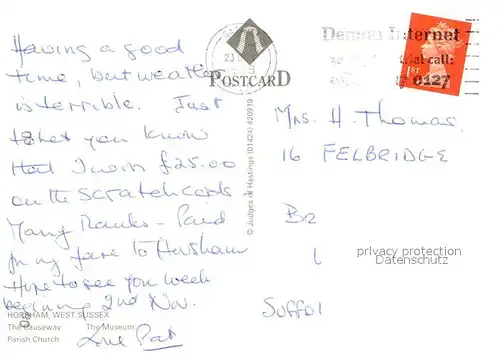 Having a good
time, but weather
is terrible. Just
to let you know
that I won £25.00
on the Scratchcards
Many Thanks - Paid
for my fare to Horsham
Hope to see you week
beginning 2nd Nov.
Love Pat
HORSHAM, WEST SUSSEX
The Causeway The Museum
Parish Church
POSTCARD
© Judges of Hastings (01424) 420919
23
Demon Internet
trial call:
0127
1ST
Mrs. H. Thomas.
16 FELBRIDGE
privacy protection
Datenschutz